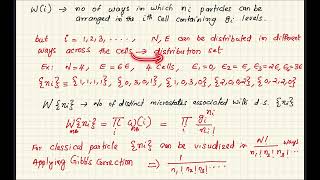 W(i) → no of ways in which ni particles can be
arranged in the ith cell containing gi levels.
but i = 1,2,3,....., N,E can be distributed in different
ways across the cells → distribution set
Ex: N=4, E=6ε, 4 cells, ε1=0, ε2=ε, ε3=2ε, ε4=3ε
{ni} = {1,1,1,1}, {0,3,0,1}, {1,0,3,0}, {2,0,0,2}, {0,2,2,0}
W{ni} → no of distinct microstates associated with d.s. {ni}
W{ni} = π W(i) = π gi^ni / ni!
For classical particle {ni} can be visualized in N! / n1! n2! n3!... ways
Applying Gibb's Correction ⟹ 1 / n1! n2! n3!...